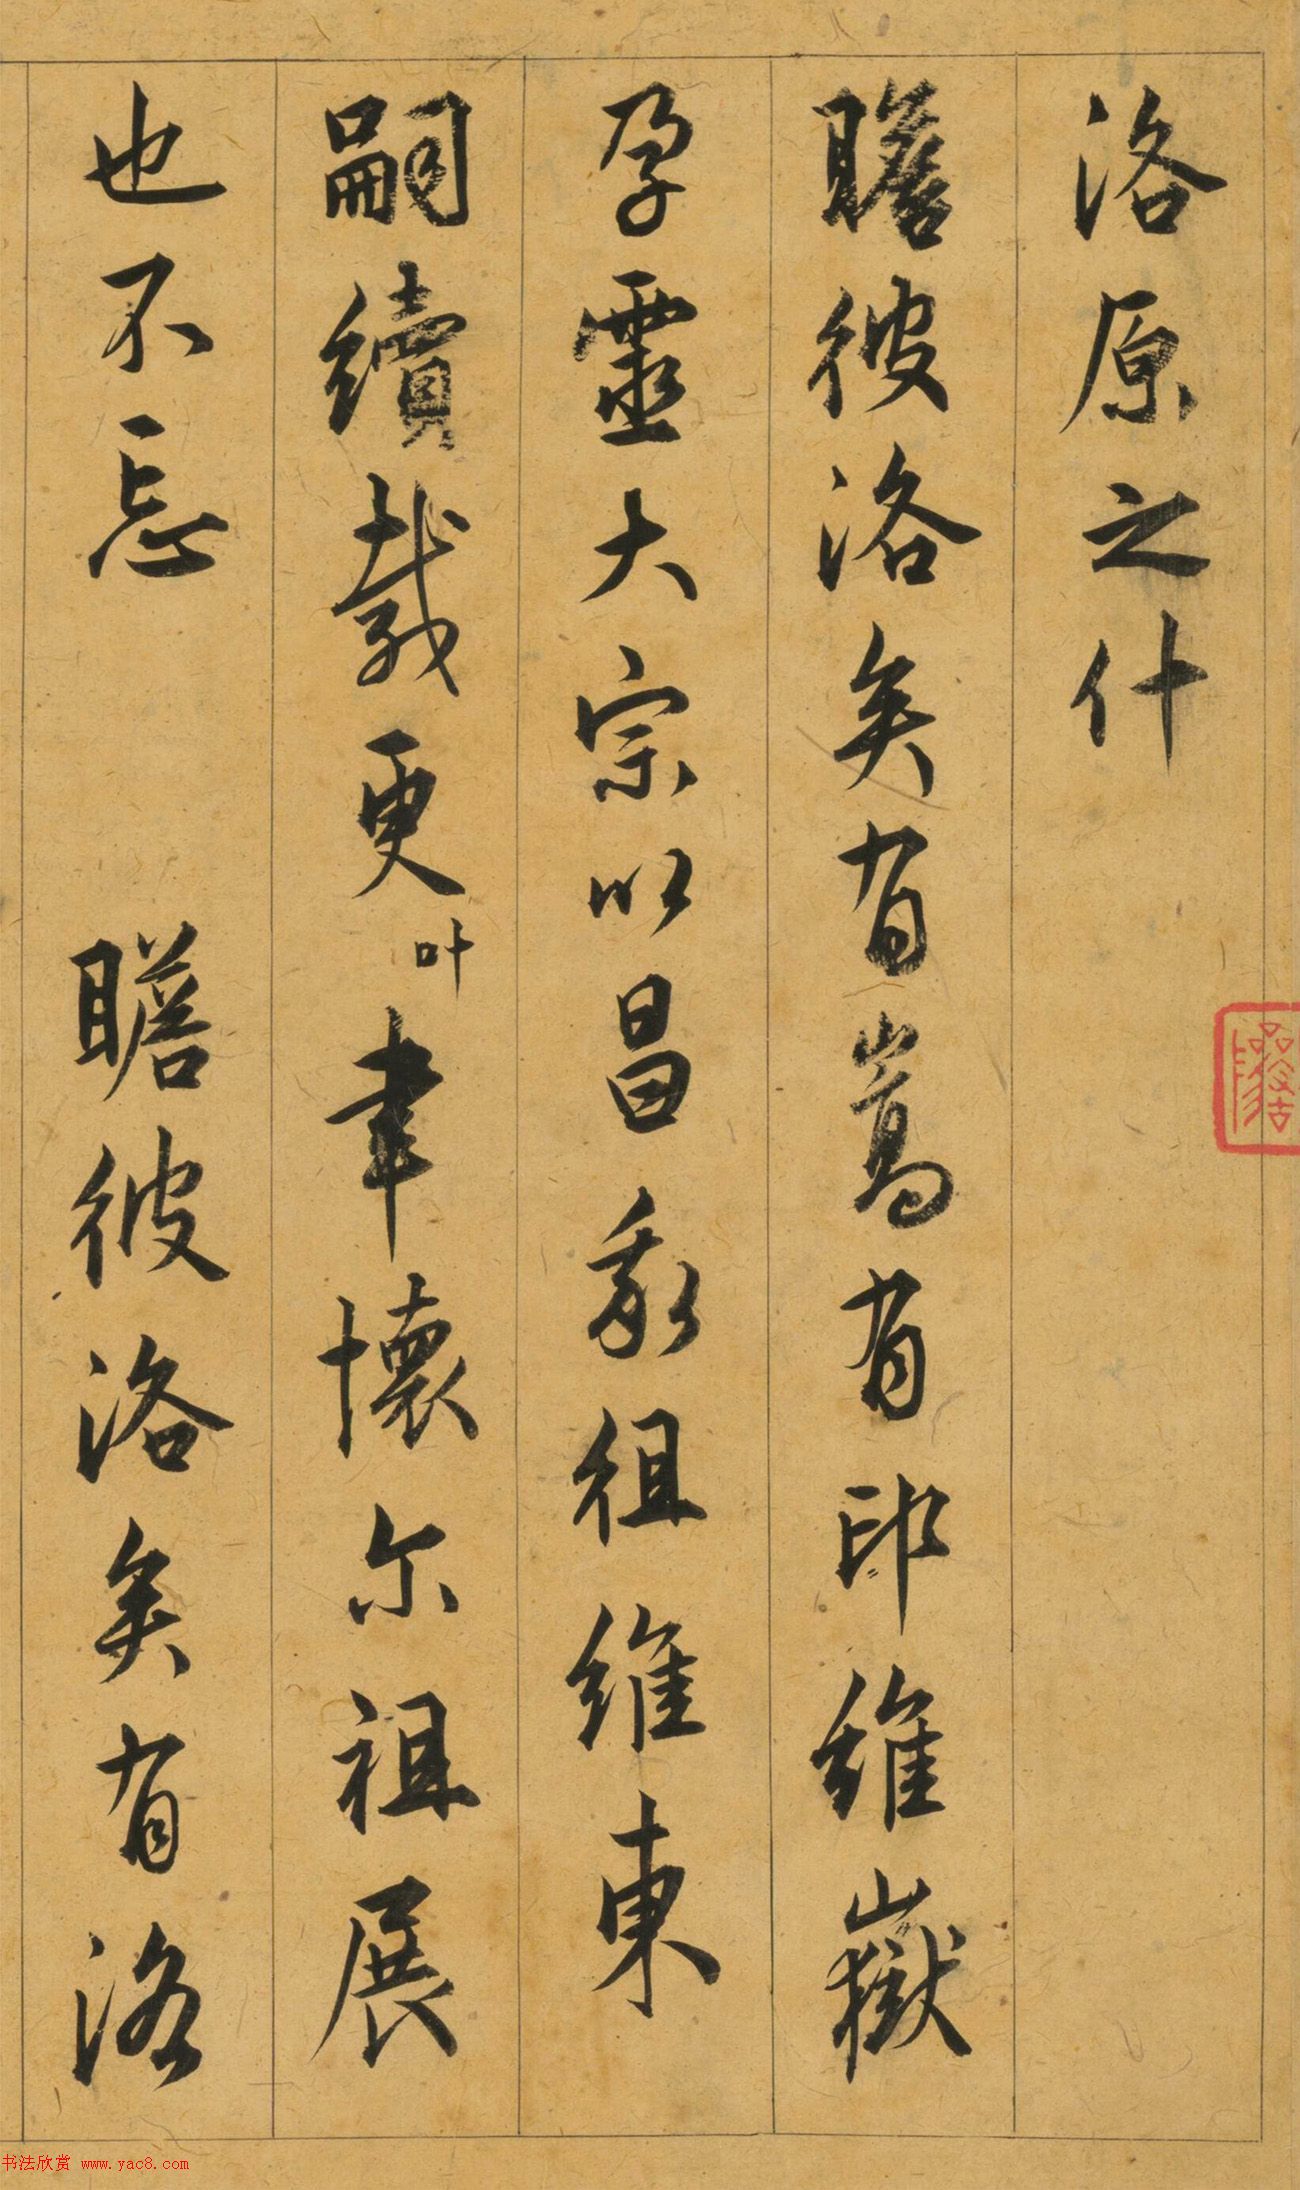 洛原之什
瞻彼洛矣有嵩有邙維嶽
孕靈大宗以昌我徂維東
嗣續載更叶聿懷尔祖展
也不忘 瞻彼洛矣有洛
书法欣赏 www.yac8.com